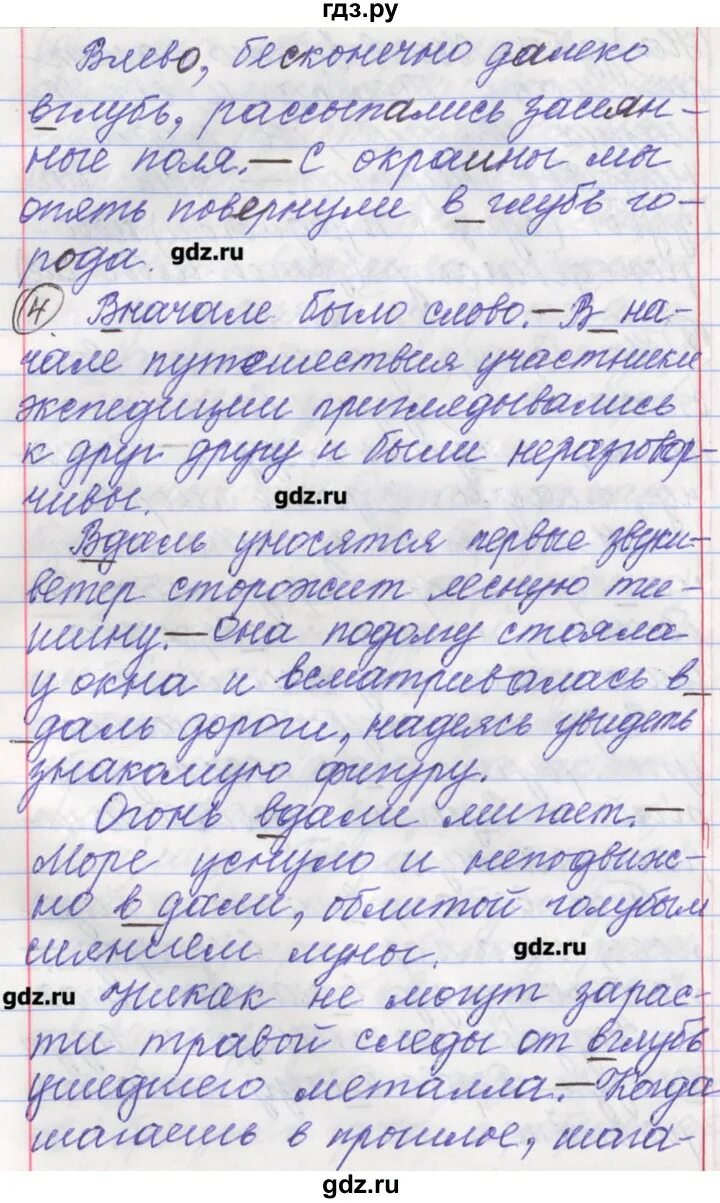 гдз.ру
Влево, бесконечно далеко
вглубь, рассыпались засеян-
ные поля. — С окраины мы
опять повернули в глубь го-
рода. gdz.ru
4 Вначале было слово. — В на-
чале путешествия участники
экспедиции приглядывались
к друг другу и были неразговор-
чивы. gdz.ru
Вдаль уносятся первые звуки-
ветер сторожит лесную ти-
шину. — Она подому стояла
у окна и всматривалась в
даль дороги, надеясь увидеть
знакомую фигуру.
Огонь вдали мигает. —
Море уснуло и неподвиж-
но в дали, облитой голубым
сиянием луны. gdz.ru
gdz.ru Никак не могут зарас-
ти травой следы от вглубь
ушедшего металла. — Когда
шагаешь в прошлое, шага-
gdz.ru